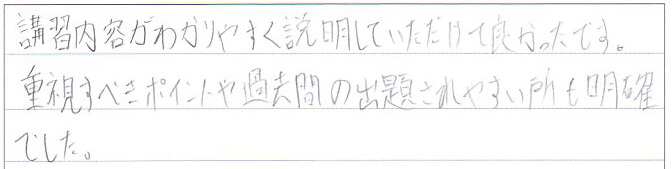 講習内容がわかりやすく説明していただけて良かったです。
重視すべきポイントや過去問の出題されやすい所も明確
でした。